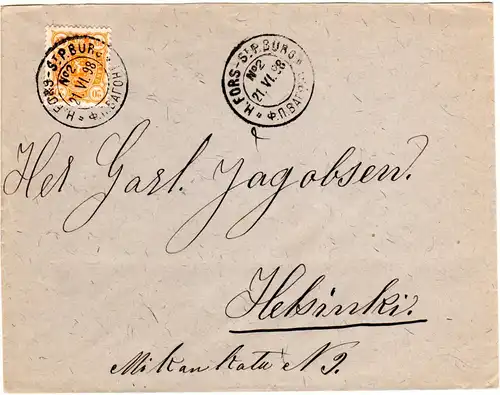 H.FORS-St.P.BURG
No2
21.VI.98
H.FORS-St.P.BURG
No2
21.VI.98
Ф.П.ВАГ
Her Garl. Jagobsen.
Helsinki.
Mikankatu N 9.